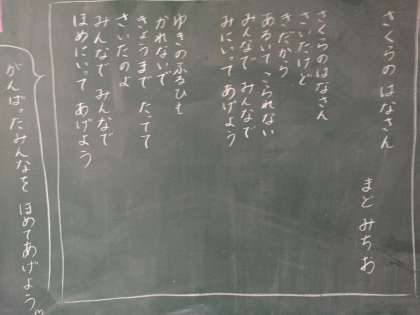 さくらの はなさん
まど みちお
さくらのはなさん
さいたけど
きだから
あるいて こられない
みんなで みんなで
みにいって あげよう
ゆきのふるひも
かれないで
きょうまで たってて
さいたのよ
みんなで みんなで
ほめにいって あげよう
がんばったみんなを ほめてあげよう